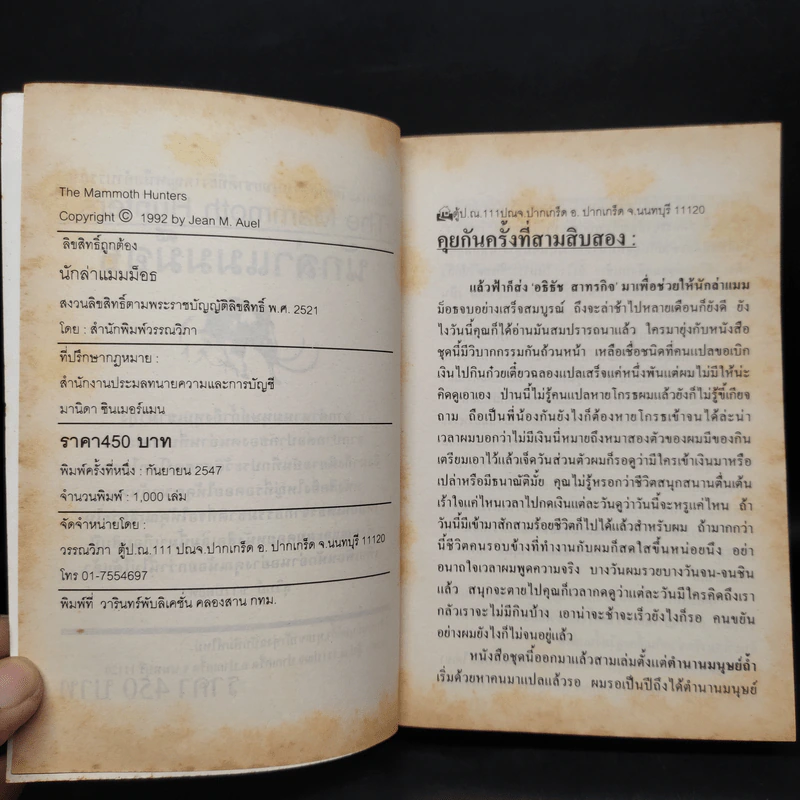 The Mammoth Hunters
Copyright © 1992 by Jean M. Auel
ลิขสิทธิ์ถูกต้อง
นักล่าแมมม็อธ
สงวนลิขสิทธิ์ตามพระราชบัญญัติลิขสิทธิ์ พ.ศ. 2521
โดย : สำนักพิมพ์วรรณวิภา
ที่ปรึกษากฎหมาย :
สำนักงานประมลทนายความและการบัญชี
มานิดา ซินเมอร์แมน
ราคา450 บาท
พิมพ์ครั้งที่หนึ่ง : กันยายน 2547
จำนวนพิมพ์ : 1,000 เล่ม
จัดจำหน่ายโดย :
วรรณวิภา ตู้ป.ณ.111 ปณจ.ปากเกร็ด อ. ปากเกร็ด จ.นนทบุรี 11120
โทร 01-7554697
พิมพ์ที่ วารินทร์พับลิเคชั่น คลองสาน กทม.
ตู้ป.ณ.111ปณจ.ปากเกร็ด อ. ปากเกร็ด จ.นนทบุรี 11120
คุยกันครั้งที่สามสิบสอง :
แล้วฟ้าก็ส่ง 'อธิธัช สาทรกิจ' มาเพื่อช่วยให้นักล่าแมม
ม็อธจบอย่างเสร็จสมบูรณ์ ถึงจะล่าช้าไปหลายเดือนก็ยังดี ยัง
ไงวันนี้คุณก็ได้อ่านมันสมปรารถนาแล้ว ใครมายุ่งกับหนังสือ
ชุดนี้มีวิบากกรรมกันถ้วนหน้า เหลือเชื่อชนิดที่คนแปลขอเบิก
เงินไปกินก๋วยเตี๋ยวฉลองแปลเสร็จแค่หนึ่งพันแต่ผมไม่มีให้น่ะ
คิดดูเอาเอง ป่านนี้ไม่รู้คนแปลหายโกรธผมแล้วยังก็ไม่รู้ขี้เกียจ
ถาม ถือเป็นพี่น้องกันยังไงก็ต้องหายโกรธเข้าจนได้ล่ะน่า
เวลาผมบอกว่าไม่มีเงินนี่หมายถึงหมาสองตัวของผมมีของกิน
เตรียมเอาไว้แล้วเจ็ดวันส่วนตัวผมก็รอดูว่ามีใครเข้าเงินมาหรือ
เปล่าหรือมีธนาณัติมั้ย คุณไม่รู้หรอกว่าชีวิตสนุกสนานตื่นเต้น
เร้าใจแค่ไหนเวลาไปกดเงินแต่ละวันดูว่าวันนี้จะหรูแค่ไหน ถ้า
วันนี้มีเข้ามาสักสามร้อยชีวิตก็ไปได้แล้วสำหรับผม ถ้ามากกว่า
นี้ชีวิตคนรอบข้างที่ทำงานกับผมก็สดใสขึ้นหน่อยนึง อย่า
อนาถใจเวลาผมพูดความจริง บางวันผมรวยบางวันจน-จนชิน
แล้ว สนุกจะตายไปคุณก็เวลากดดูว่าแต่ละวันมีใครคิดถึงเรา
กลัวเราจะไม่มีกินบ้าง เอาน่าจะช้าจะเร็วยังไงก็รอ คนขยัน
อย่างผมยังไงก็ไม่จนอยู่แล้ว
หนังสือชุดนี้ออกมาแล้วสามเล่มตั้งแต่ตำนานมนุษย์ถ้ำ
เริ่มด้วยหาคนมาแปลแล้วรอ ผมรอเป็นปีถึงได้ตำนานมนุษย์